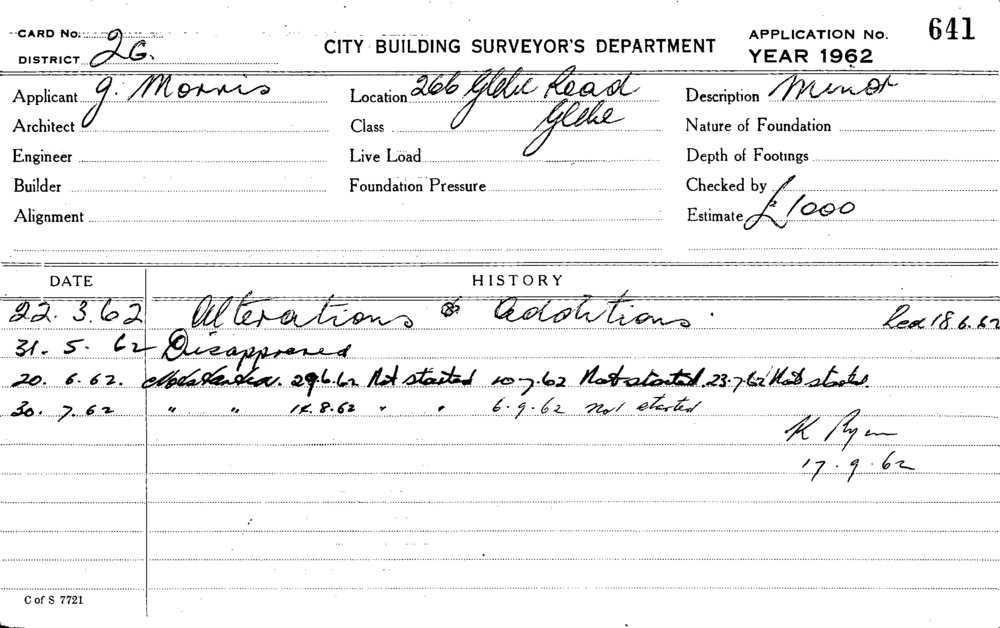 CARD No.
DISTRICT 2G.
CITY BUILDING SURVEYOR'S DEPARTMENT
APPLICATION No. 641
YEAR 1962
Applicant J. Morris
Location 266 Glebe Road
Glebe
Description Minor
Architect
Class
Nature of Foundation
Engineer
Live Load
Depth of Footings
Builder
Foundation Pressure
Checked by
Alignment
Estimate £1000
DATE HISTORY
22. 3. 62 Alterations & additions. 18.6.62
31. 5. 62 Disapproved
20. 6. 62. Not started. 29.6.62 Not started 10.7.62 Not started. 23.7.62 Not started.
30. 7. 62 " " 14.8.62 " " 6.9.62 Not started
K Ryan
17.9.62
C of S 7721